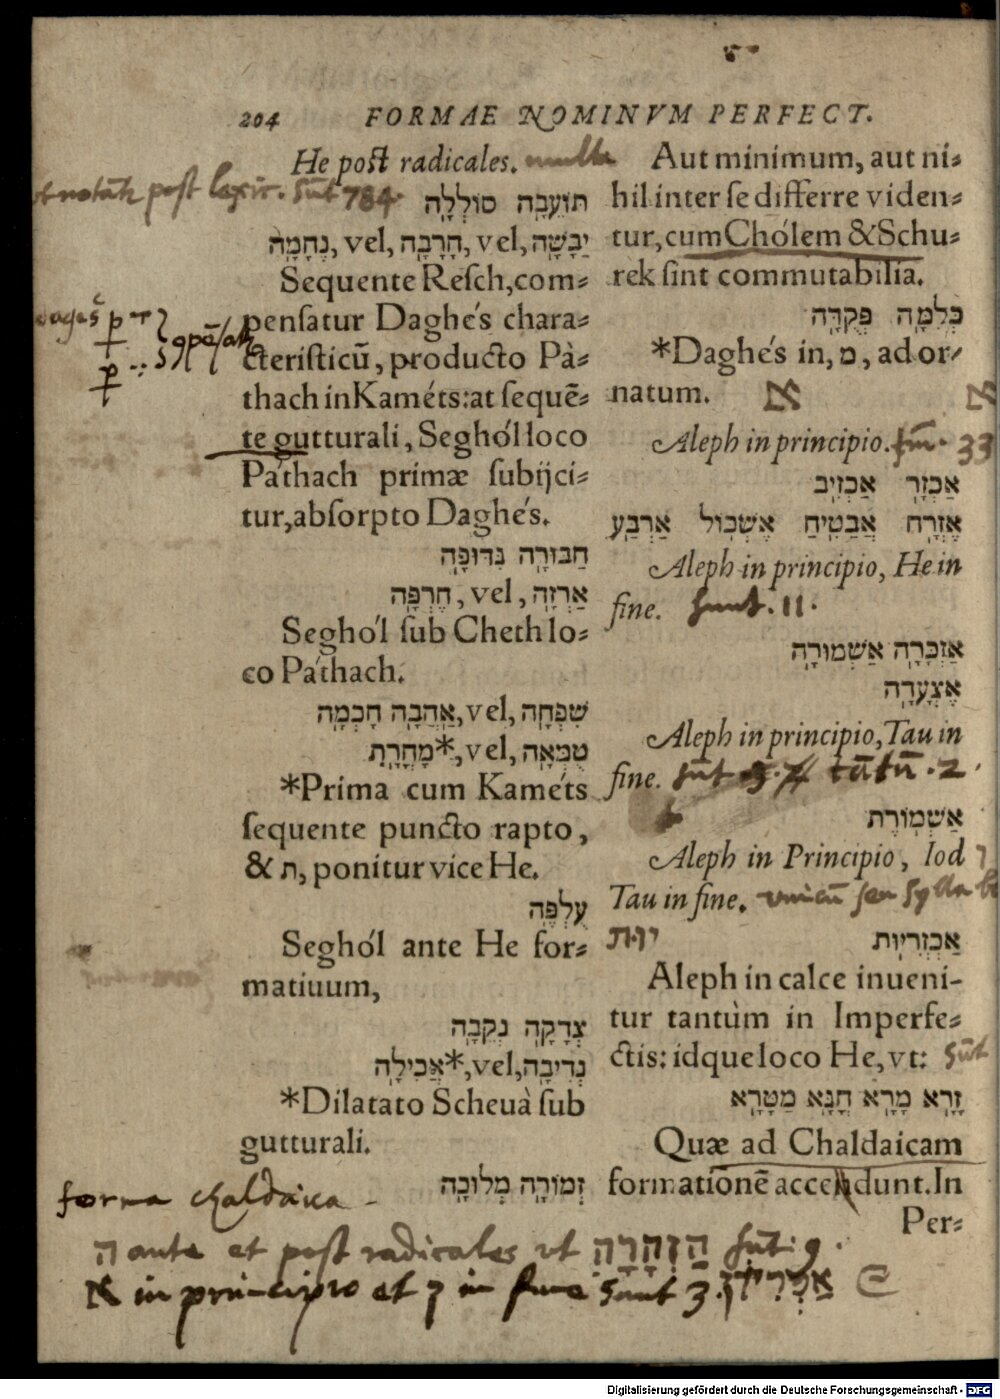 204 FORMAE NOMINVM PERFECT.
He post radicales. multa
post lexic. sūt 784.
תוֹעֵבָה סוֹלְלָה
יַבָּשָׁה, vel, חָרָבָה, vel, נֶחָמָה
Sequente Resch, com=
pensatur Daghés chara=
cteristicū, producto Pà-
thach in Kaméts: at sequē=
te gutturali, Seghól loco
Páthach primæ subijci=
tur, absorpto Daghés.
חַבּוּרָה גִּדּוּפָה
אַרְזָה, vel, חֶרְפָּה
Seghól sub Cheth lo=
co Páthach.
שִׁפְחָה, vel, אַהֲבָה חָכְמָה
טֻמְאָה, vel, *מָחֳרָת
*Prima cum Kaméts
sequente puncto rapto,
& ת, ponitur vice He.
עֻלְפֶּה
Seghól ante He for=
matiuum,
צְדָקָה נְקֵבָה
נְדִיבָה, vel, *אֲכִילָה
*Dilatato Scheuà sub
gutturali.
זְמוֹרָה מְלוּכָה
forma chaldaica
Aut minimum, aut ni=
hil inter se differre viden=
tur, cum Chólem & Schu=
rék sint commutabilia.
כְּלִמָּה פְּקֻדָּה
*Daghés in, מ, ad or=
natum. א א
Aleph in principio. sūt. 33
אַכְזָר אַכְזִיב
אֶזְרָח אֲבַטִּיחַ אֶשְׁכּוֹל אַרְבַּע
Aleph in principio, He in
fine. sunt. 11.
אַזְכָּרָה אַשְׁמוּרָה
אֶצְעָדָה
Aleph in principio, Tau in
fine. sūt tātū. 2.
אַשְׁמֹרֶת
Aleph in Principio, Iod ו
Tau in fine. unicū seu sylla
יות
אַכְזְרִיּוּת
Aleph in calce inueni-
tur tantùm in Imperfe=
ctis: idque loco He, vt: sūt
זָרָא מָרָא חֲנָּא מַטָּרָא
Quæ ad Chaldaicam
formationē accedunt. In
Per=
ה ante et post radicales ut הַזְהָרָה sūt. 9.
א in principio et ן in fine sunt 3.